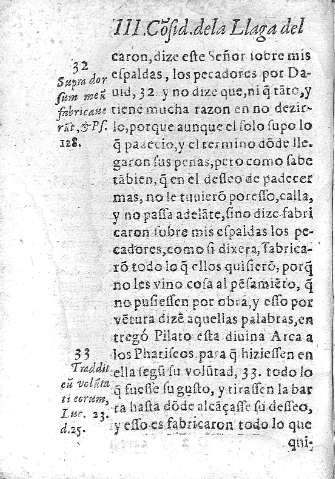 III. Cõsid. dela Llaga del
caron, dize este Señor sobre mis
espaldas, los pecadores por Da-
uid, 32 y no dize que, ni q̃ tãto, y
tiene mucha razon en no dezir-
lo, porque aunque el solo supo lo
q̃ padecio, y el termino dõde lle-
garon sus penas, pero como sabe
tãbien, q̃ en el desseo de padecer
mas, no le tuuierõ por esso, calla,
y no passa adelãte, sino dize fabri
caron sobre mis espaldas los pe-
cadores, como si dixera, fabrica-
rõ todo lo q̃ ellos quisierõ, porq̃
no les vino cosa al pẽsamiẽto, q̃
no pusiessen por obra, y esso por
vẽtura dizẽ aquellas palabras, en
tregó Pilato esta diuina Arca a
los Phariseos para q̃ hiziessen en
ella segũ su volũtad, 33. todo lo
q̃ fuesse su gusto, y tirassen la bar
ra hasta dõde alcãçasse su desseo,
y esso es fabricaron todo lo que
qui-
32
Supra dor
sum meũ
fabricaue
rũt, & Ps.
128.
33
Traddit
eũ volũta
ti eorum,
Luc. 23.
d.25.